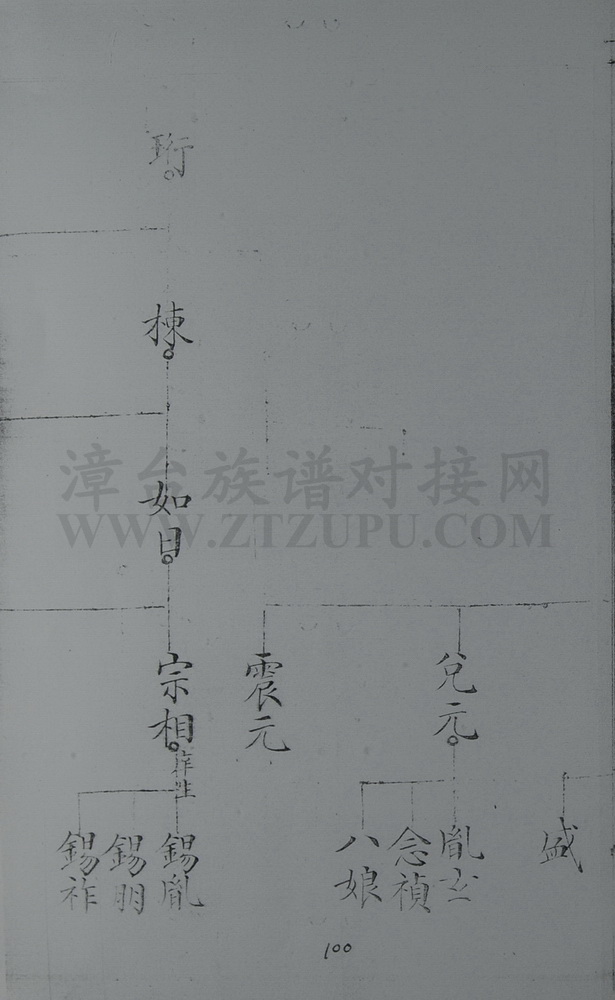 珩
棟
如日
宗相
震元
兌元
錫胤
錫明
錫祚
胤
念禎
八娘
盛
漳台族谱对接网
WWW.ZTZUPU.COM
100